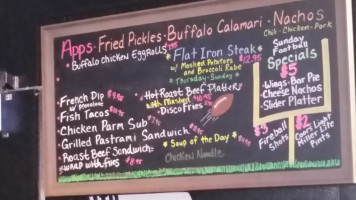 Apps - Fried Pickles - Buffalo Calamari - Nachos
Chili - Chicken - Pork
Buffalo Chicken Eggrolls
Flat Iron Steak
w/ Mashed Potatoes $12.95
and Broccoli Rabe
Thursday - Sunday
Hot Roast Beef Platter
with Mashed $10.95
Disco Fries
French Dip $9.95
Fish Tacos
Chicken Parm Sub
Grilled Pastrami Sandwich
Roast Beef Sandwich
wrap with fries
Soup of the Day
Chicken Noodle
Sunday
Football
Specials
$5
Wings - Bar Pie
Cheese Nachos
Slider Platter
$3
Fireball
Shots
$2
Coors Light
Miller Lite
Pints